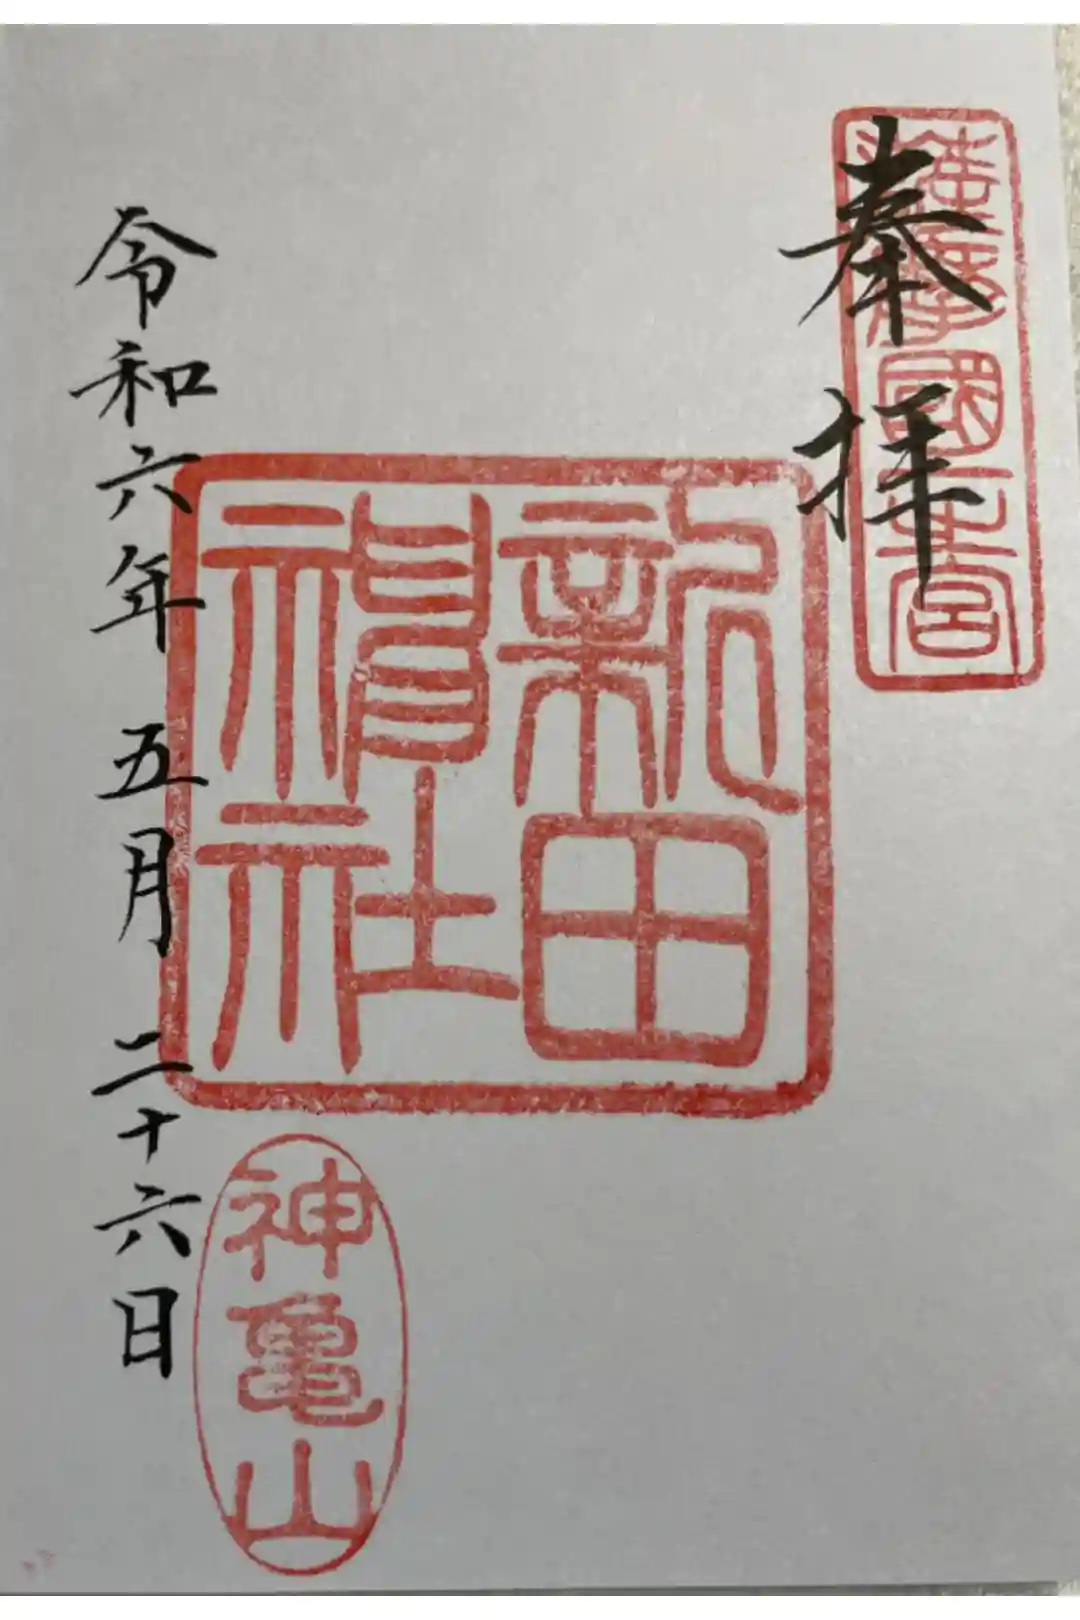 奉拝
薩摩國一之宮
新田
神社
令和六年五月二十六日
神亀山